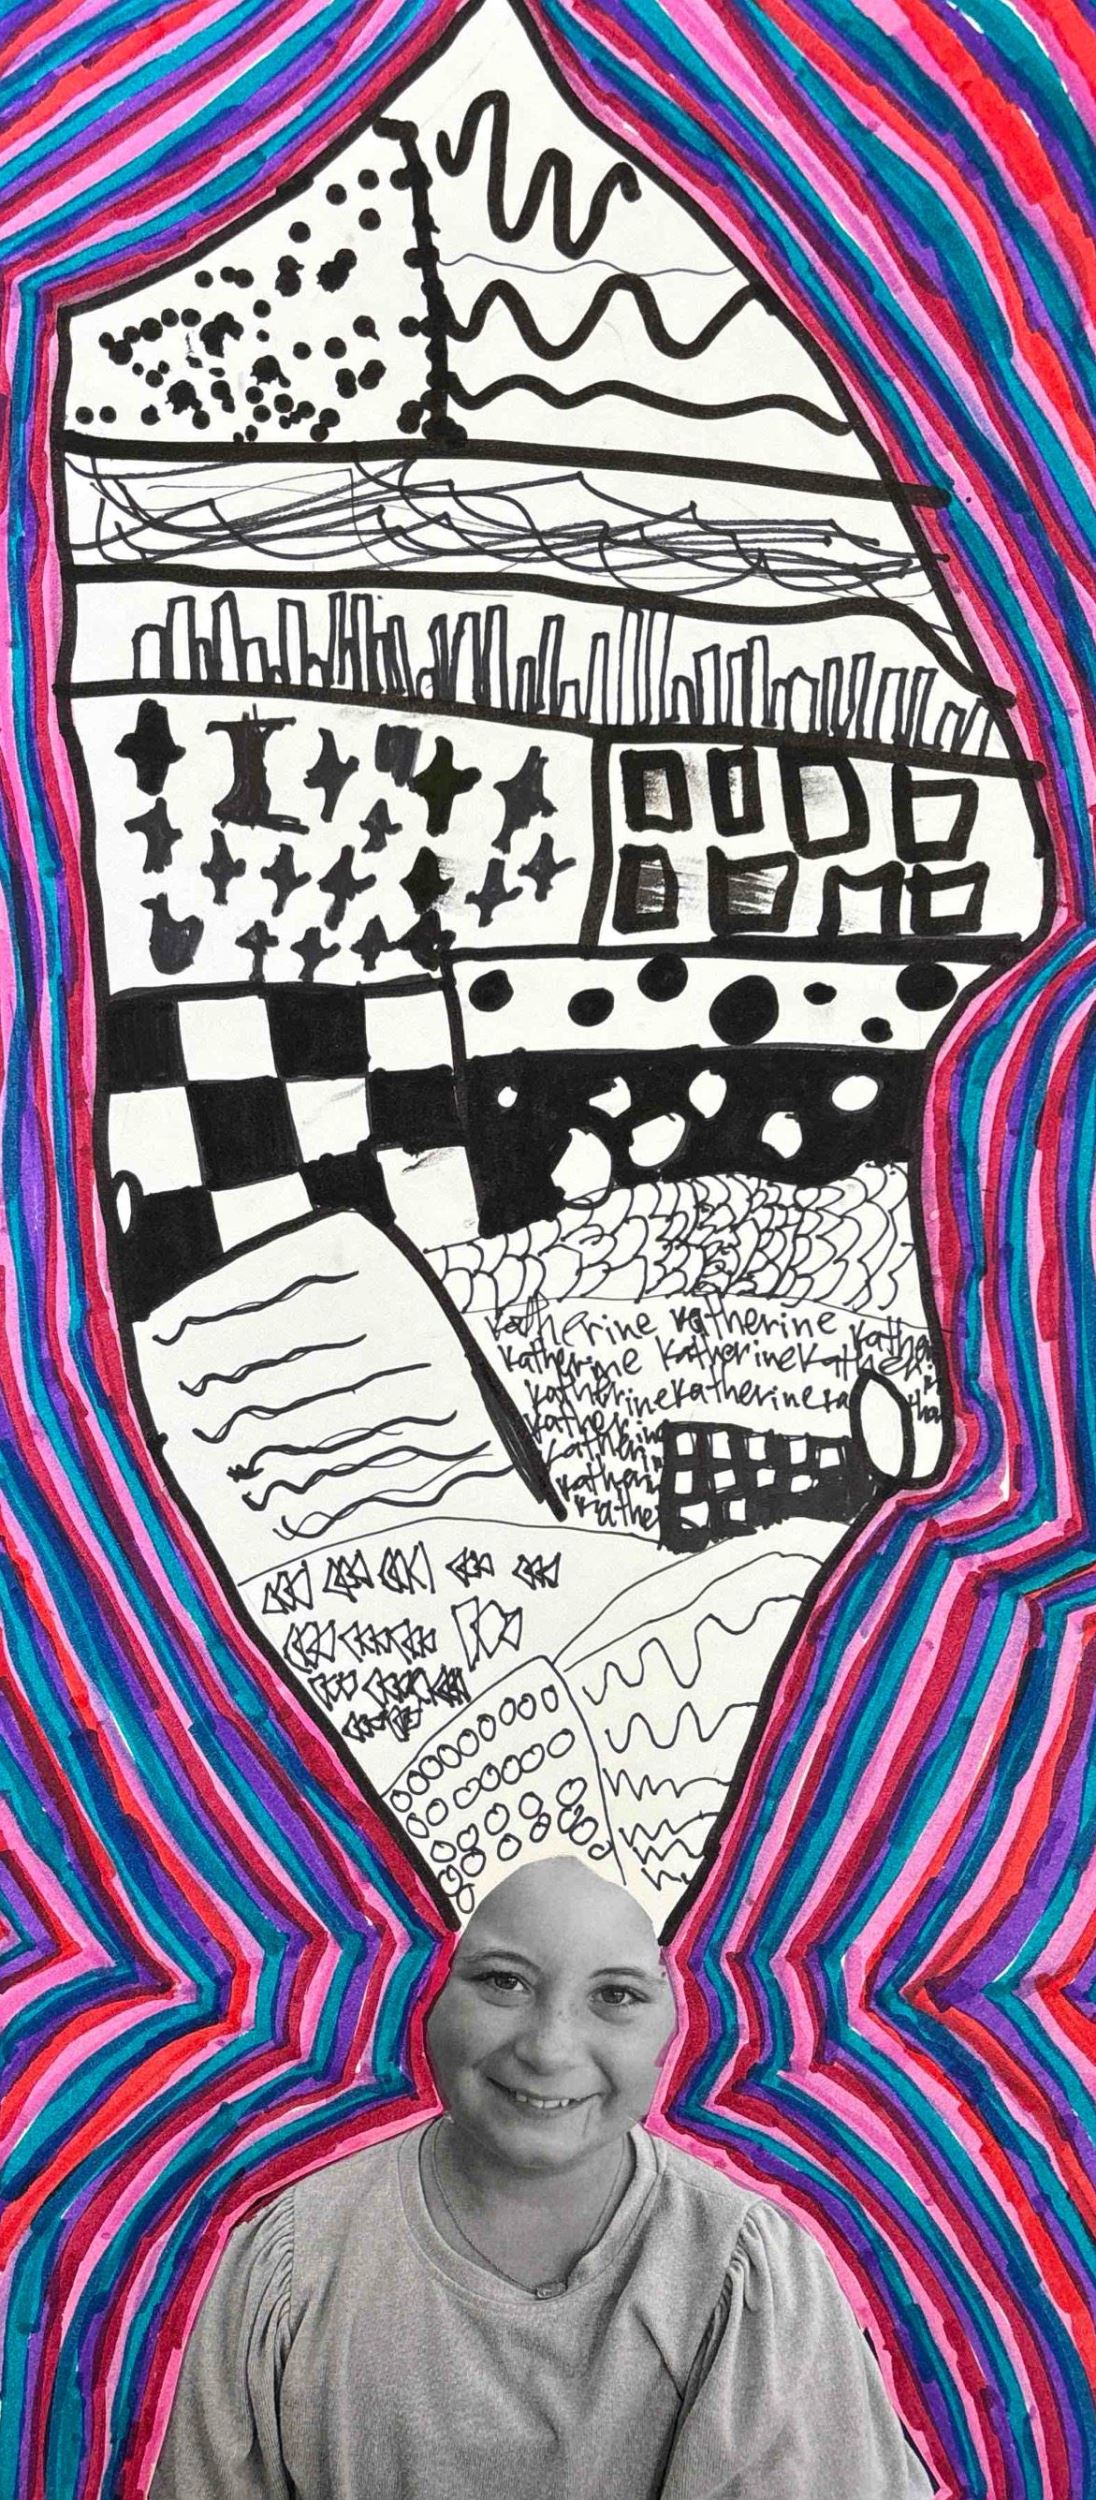 katherine katherine kathe
katherine katherine kather
katherine katherine ka tha
katherin
katherin
katherin
kathe